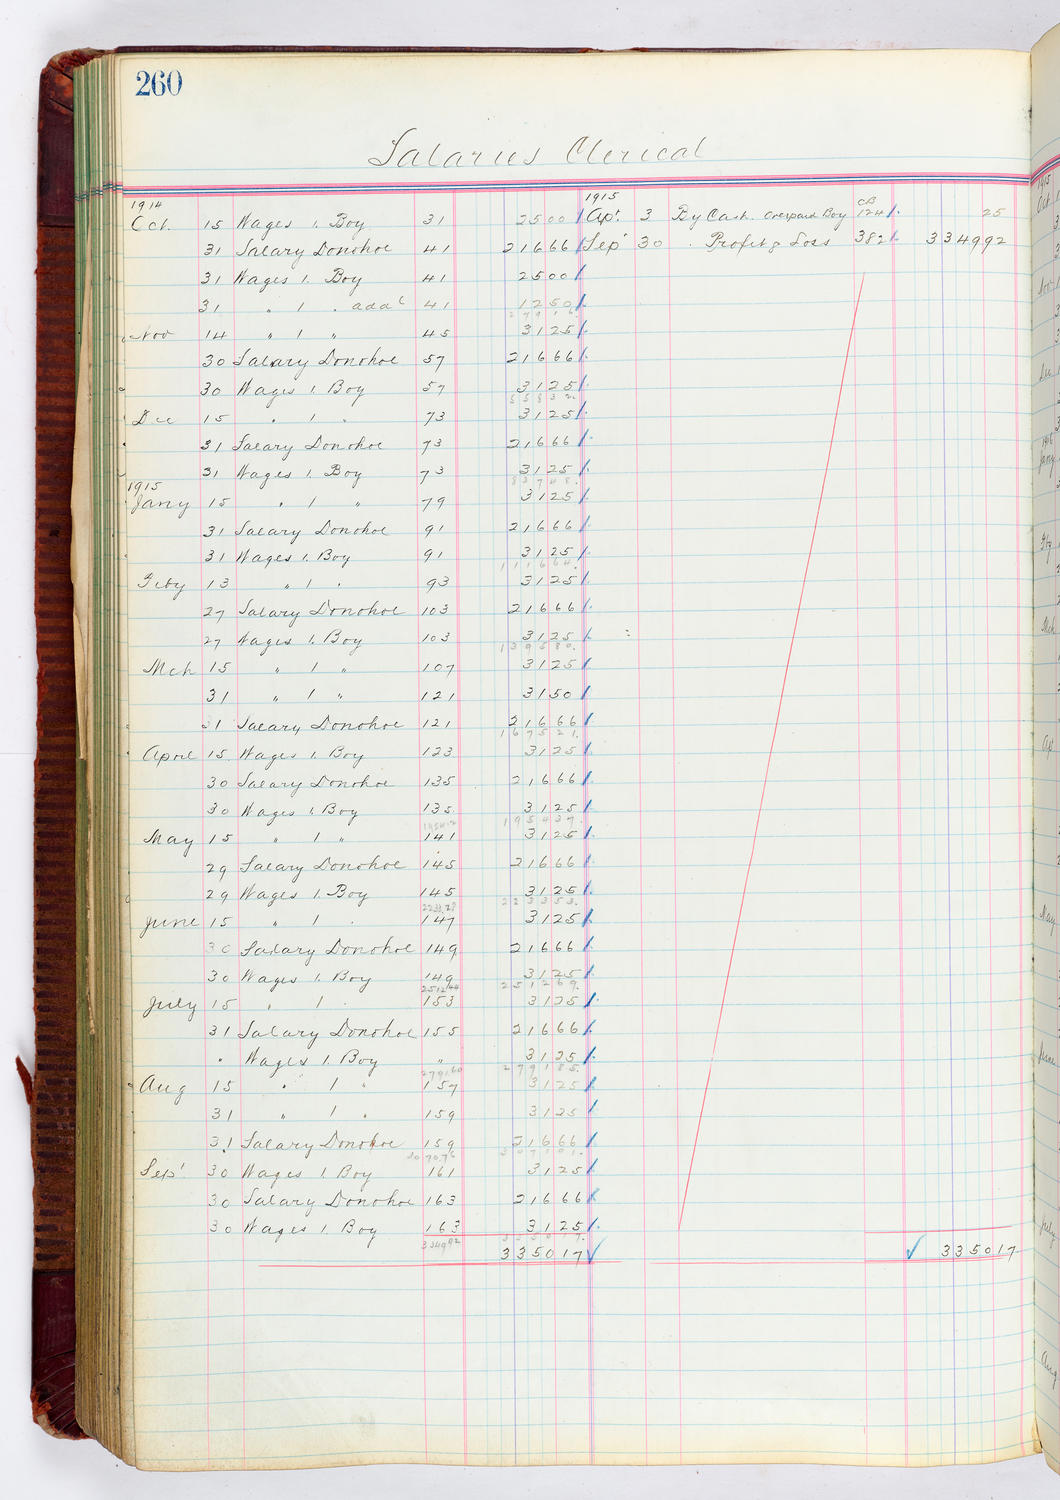 260
Salaries Clerical
1914 1915
Oct. 15 Wages 1. Boy 31 2500 Apl. 3 By Cash. Overpaid Boy CB 124 25
31 Salary Donohoe 41 21666 Sep' 30 . Profit & Loss 382 334992
31 Wages 1. Boy 41 2500
31 " 1 . adal 41 1250
27916.
Nov 14 " 1 " 45 3125
30 Salary Donohoe 57 21666
30 Wages 1. Boy 57 3125
55832.
Dec 15 . 1 . 73 3125
31 Salary Donohoe 73 21666
31 Wages 1. Boy 73 3125
83748.
1915
Jany 15 . 1 " 79 3125
31 Salary Donohoe 91 21666
31 Wages 1. Boy 91 3125
111664.
Feby 13 " 1 . 93 3125
27 Salary Donohoe 103 21666
27 Wages 1. Boy 103 3125
139580.
Mch 15 " 1 " 107 3125
31 " 1 " 121 3150
31 Salary Donohoe 121 21666
167521.
April 15 Wages 1. Boy 123 3125
30 Salary Donohoe 135 21666
30 Wages 1. Boy 135 3125
195437.
May 15 " 1 " 141 3125
29 Salary Donohoe 145 21666
29 Wages 1. Boy 145 3125
223353.
June 15 " 1 . 147 3125
30 Salary Donohoe 149 21666
30 Wages 1. Boy 149 3125
251244 251269.
July 15 " 1 . 153 3125
31 Salary Donohoe 155 21666
. Wages 1. Boy " 3125
279160 279185.
Aug 15 . 1 " 157 3125
31 " 1 . 159 3125
31 Salary Donohoe 159 21666
307076 307101.
Sep' 30 Wages 1. Boy 161 3125
30 Salary Donohoe 163 21666
30 Wages 1. Boy 163 3125
334992 335017.
335017 335017